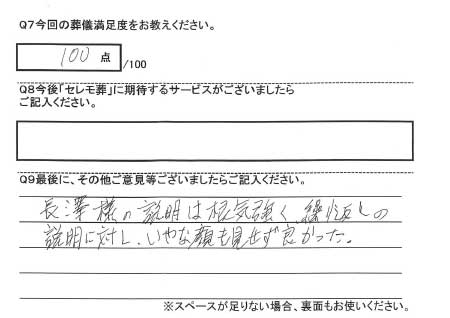 Q7今回の葬儀満足度をお教えください。
100 点 /100
Q8今後「セレモ葬」に期待するサービスがございましたら
ご記入ください。
Q9最後に、その他ご意見等ございましたらご記入ください。
長澤様の説明は根気強く、繰り返しの
説明に対し、いやな顔も見せず良かった。
※スペースが足りない場合、裏面もお使いください。